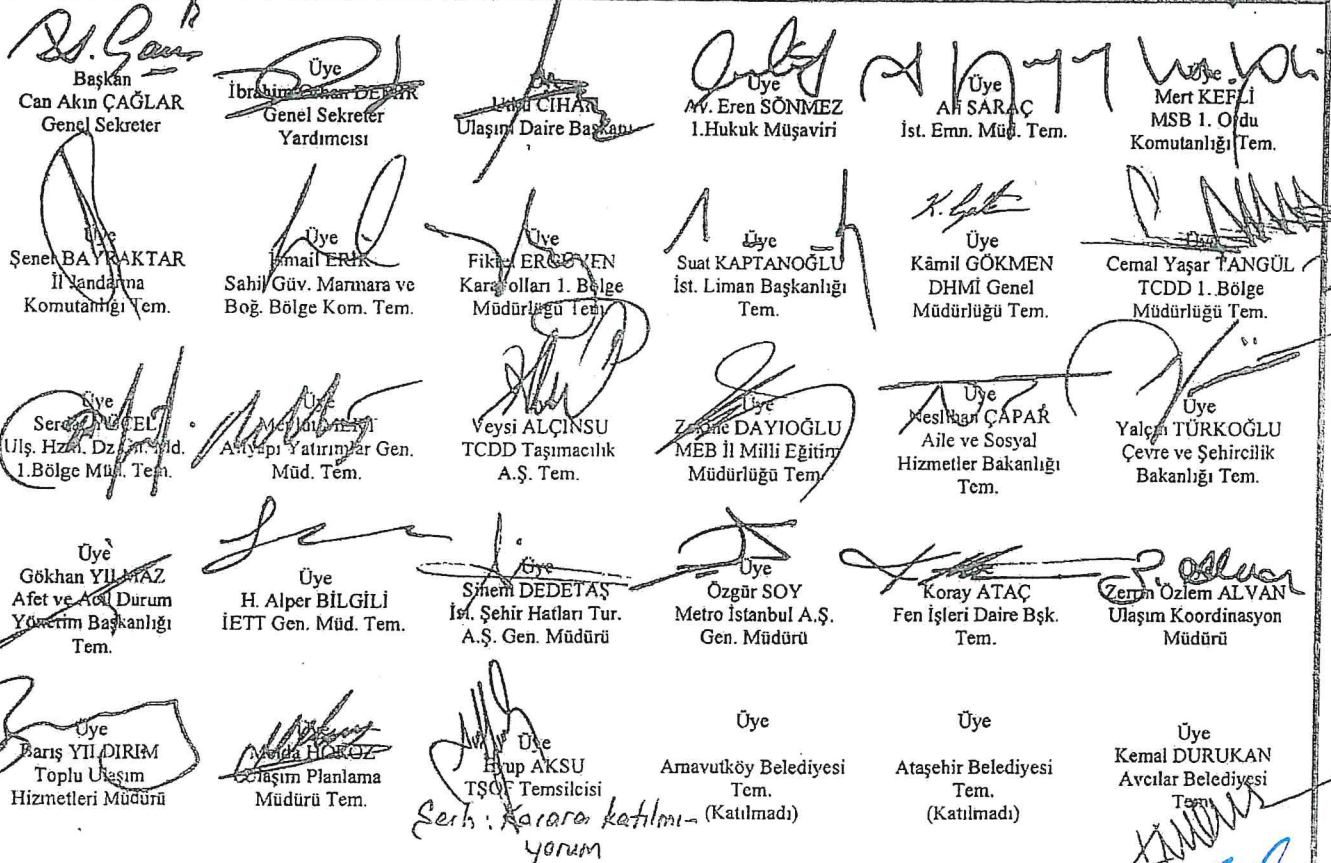 Başkan
Can Akın ÇAĞLAR
Genel Sekreter
Üye
İbrahim Orhan DEMİR
Genel Sekreter
Yardımcısı
Üye
Utku CİHAN
Ulaşım Daire Başkanı
Üye
Av. Eren SÖNMEZ
1.Hukuk Müşaviri
Üye
Ali SARAÇ
İst. Emn. Müd. Tem.
Üye
Mert KEFLİ
MSB 1. Ordu
Komutanlığı Tem.
Üye
Şener BAYRAKTAR
İl Jandarma
Komutanlığı Tem.
Üye
İsmail ERİK
Sahil Güv. Marmara ve
Boğ. Bölge Kom. Tem.
Üye
Fikret ERGÜVEN
Karayolları 1. Bölge
Müdürlüğü Tem.
Üye
Suat KAPTANOĞLU
İst. Liman Başkanlığı
Tem.
Üye
Kâmil GÖKMEN
DHMİ Genel
Müdürlüğü Tem.
Üye
Cemal Yaşar TANGÜL
TCDD 1. Bölge
Müdürlüğü Tem.
Üye
Serdar YÜCEL
Ulş. Hzm. Dz.
1.Bölge Müd. Tem.
Üye
Altyapı Yatırımlar Gen.
Müd. Tem.
Veysi ALÇINSU
TCDD Taşımacılık
A.Ş. Tem.
Üye
DAYIOĞLU
MEB İl Milli Eğitim
Müdürlüğü Tem.
Üye
Neslihan ÇAPAR
Aile ve Sosyal
Hizmetler Bakanlığı
Tem.
Üye
Yalçın TÜRKOĞLU
Çevre ve Şehircilik
Bakanlığı Tem.
Üye
Gökhan YILMAZ
Afet ve Acil Durum
Yönetim Başkanlığı
Tem.
Üye
H. Alper BİLGİLİ
İETT Gen. Müd. Tem.
Üye
Sinem DEDETAŞ
İst. Şehir Hatları Tur.
A.Ş. Gen. Müdürü
Üye
Özgür SOY
Metro İstanbul A.Ş.
Gen. Müdürü
Koray ATAÇ
Fen İşleri Daire Bşk.
Tem.
Üye
Zerrin Özlem ALVAN
Ulaşım Koordinasyon
Müdürü
Üye
Barış YILDIRIM
Toplu Ulaşım
Hizmetleri Müdürü
Üye
Melda HOROZ
Ulaşım Planlama
Müdürü Tem.
Üye
Eyup AKSU
TŞOF Temsilcisi
Şerh: Karara katılmı-
yorum
Üye
Arnavutköy Belediyesi
Tem.
(Katılmadı)
Üye
Ataşehir Belediyesi
Tem.
(Katılmadı)
Üye
Kemal DURUKAN
Avcılar Belediyesi
Tem.